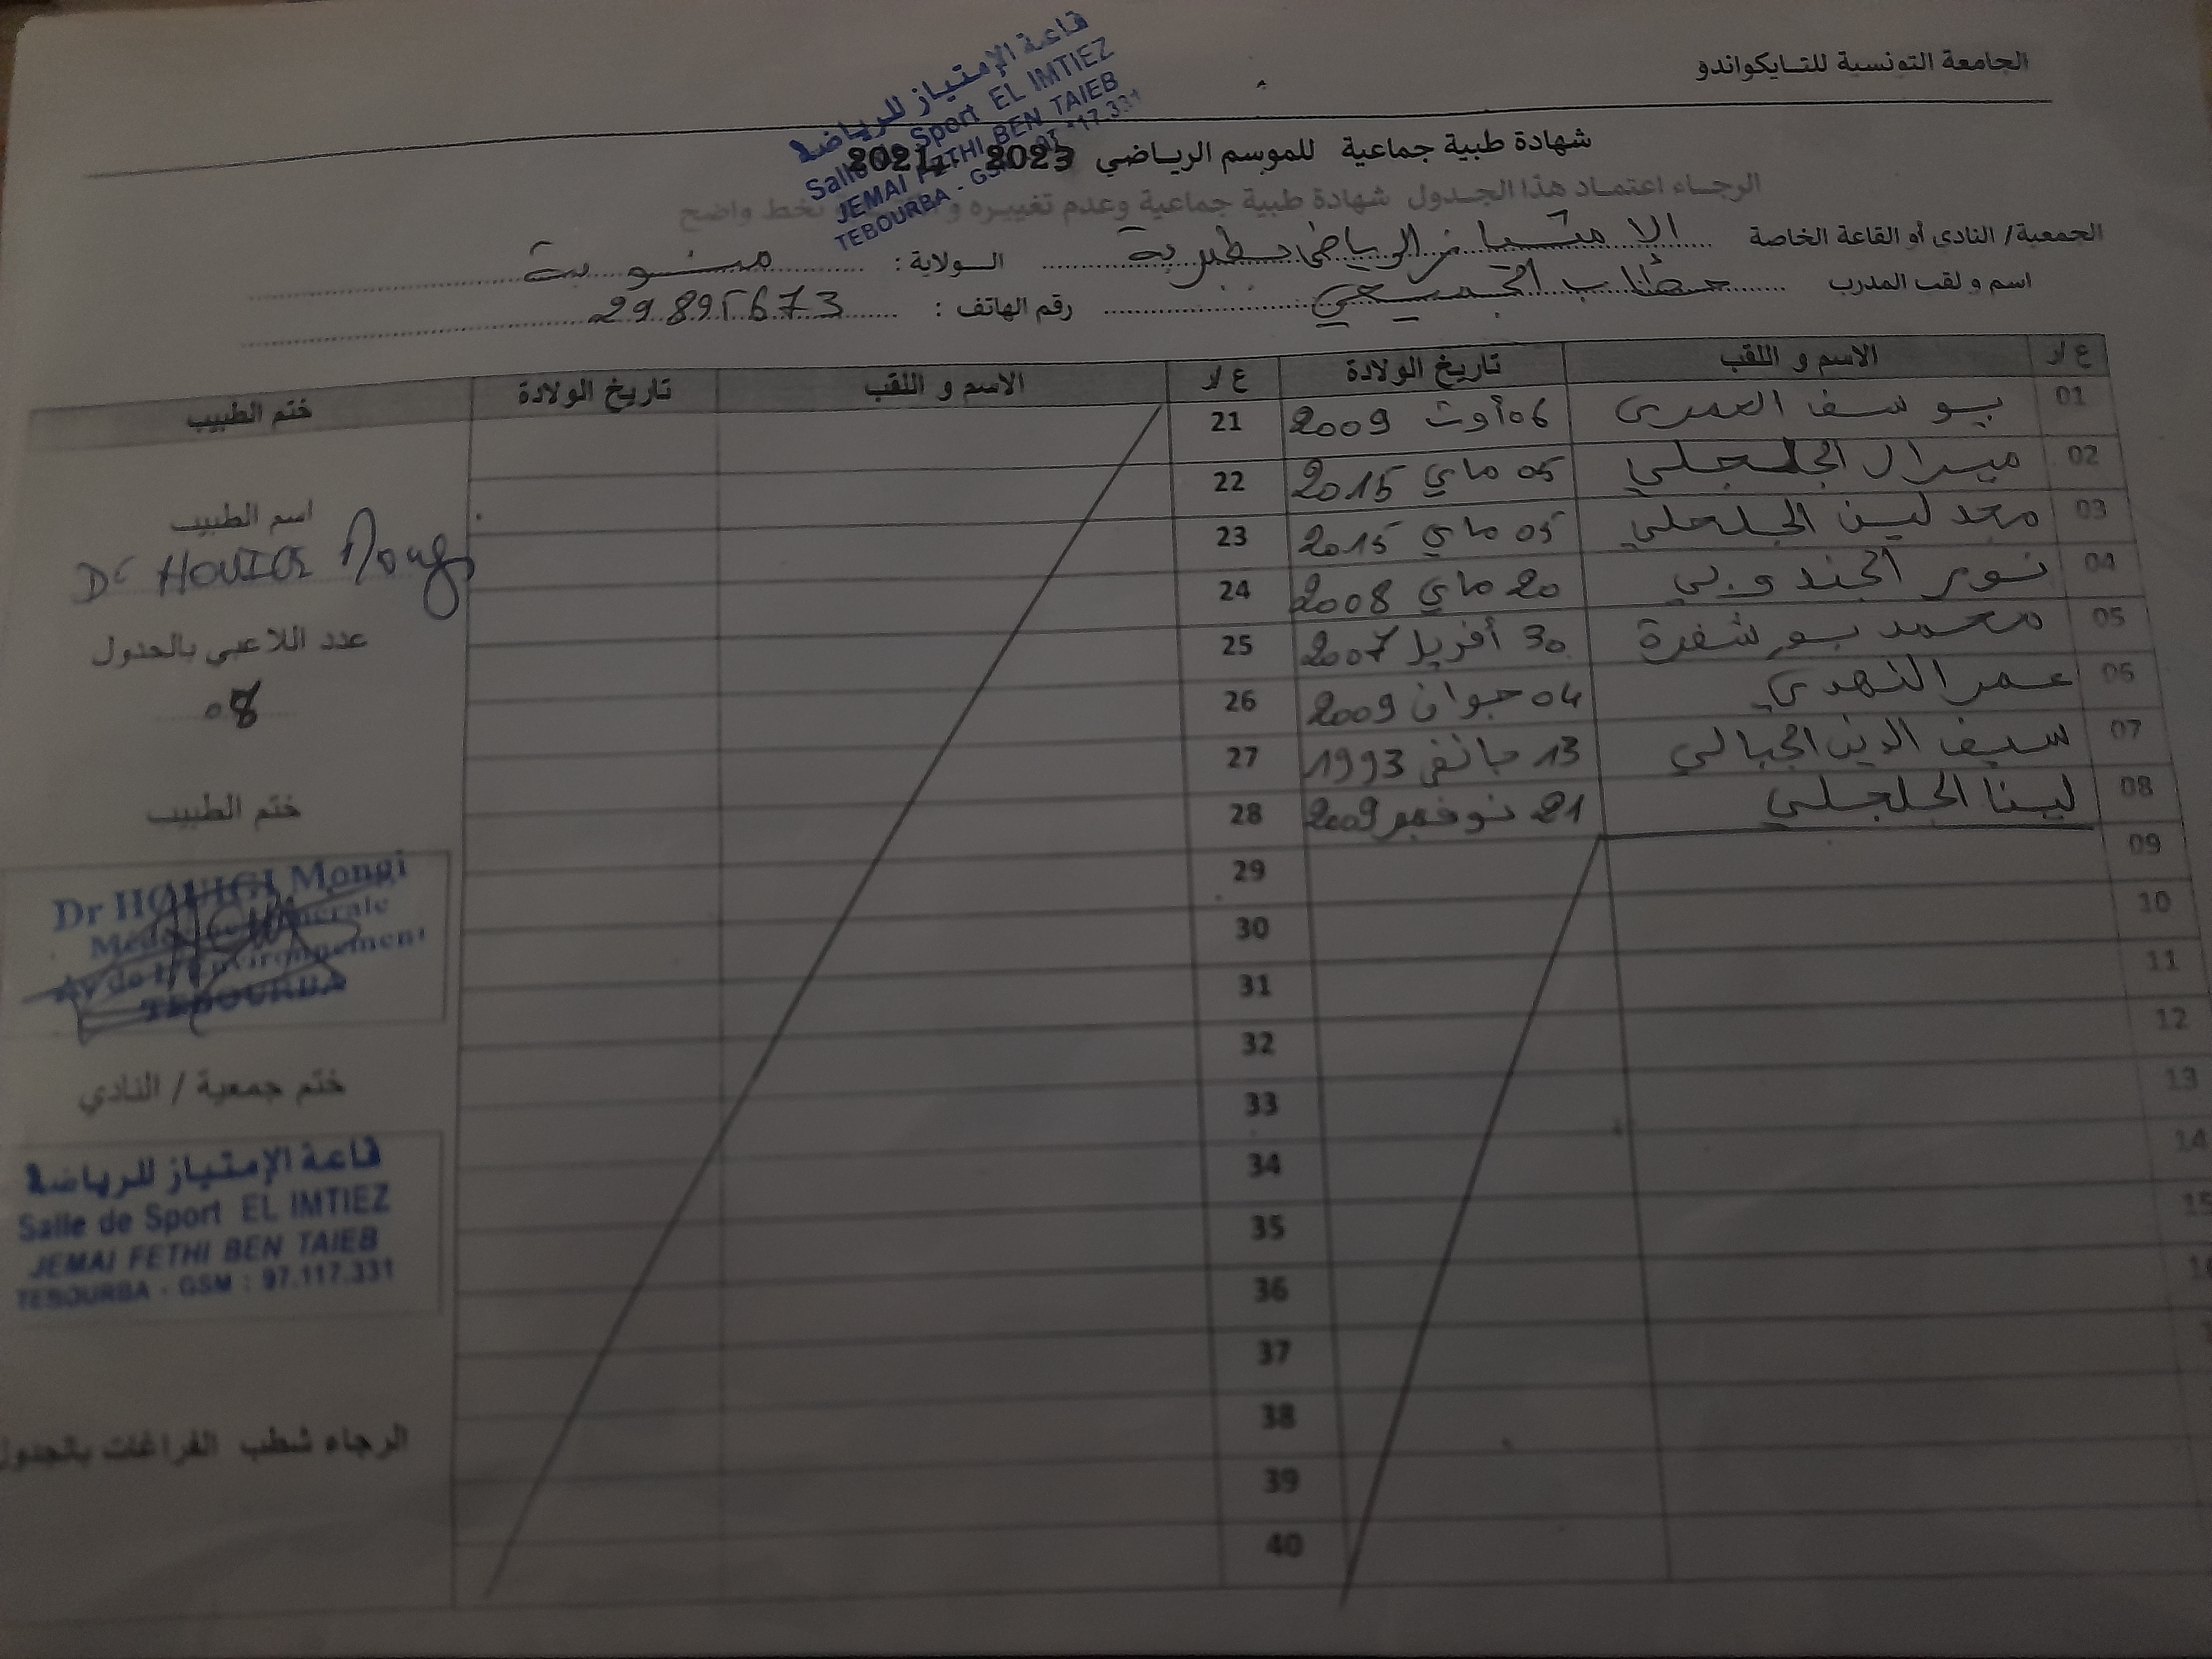 الجامعة التونسية للتايكواندو
قاعة الإمتياز للرياضة
Salle de Sport EL IMTIEZ
JEMAI FETHI BEN TAIEB
TEBOURBA - GSM 17.331
شهادة طبية جماعية للموسم الرياضي 2023
الرجاء اعتماد هذا الجدول شهادة طبية جماعية وعدم تغييره بخط واضح
الجمعية/ النادي أو القاعة الخاصة الامتياز الرياضي بطبربة الولاية: منوبة
اسم و لقب المدرب خطاب الجميعي رقم الهاتف: 29895673
ع/ر الاسم و اللقب تاريخ الولادة ع/ر الاسم و اللقب تاريخ الولادة ختم الطبيب
01 يوسف العمري 06 أوت 2009 21
02 ميرال الجلجلي 05 ماي 2015 22
03 محمد ليث الجلجلي 05 ماي 2015 23
04 نور الجندوبي 20 ماي 2008 24
05 محمد بوشفرة 30 أفريل 2007 25
06 عمر النهدي 04 جوان 2009 26
07 سيف الدين الجبالي 13 جانفي 1993 27
08 لينا الجلجلي 21 نوفمبر 2009 28
09 29
10 30
11 31
12 32
13 33
14 34
15 35
36
37
38
39
40
اسم الطبيب
Dr HOUIGI Mongi
عدد اللاعبي بالجدول
08
ختم الطبيب
Dr HOUIGI Mongi
Médecine Générale
Av de l'Environnement
TEBOURBA
ختم جمعية / النادي
قاعة الإمتياز للرياضة
Salle de Sport EL IMTIEZ
JEMAI FETHI BEN TAIEB
TEBOURBA - GSM : 97.117.331
الرجاء شطب الفراغات بالجدول